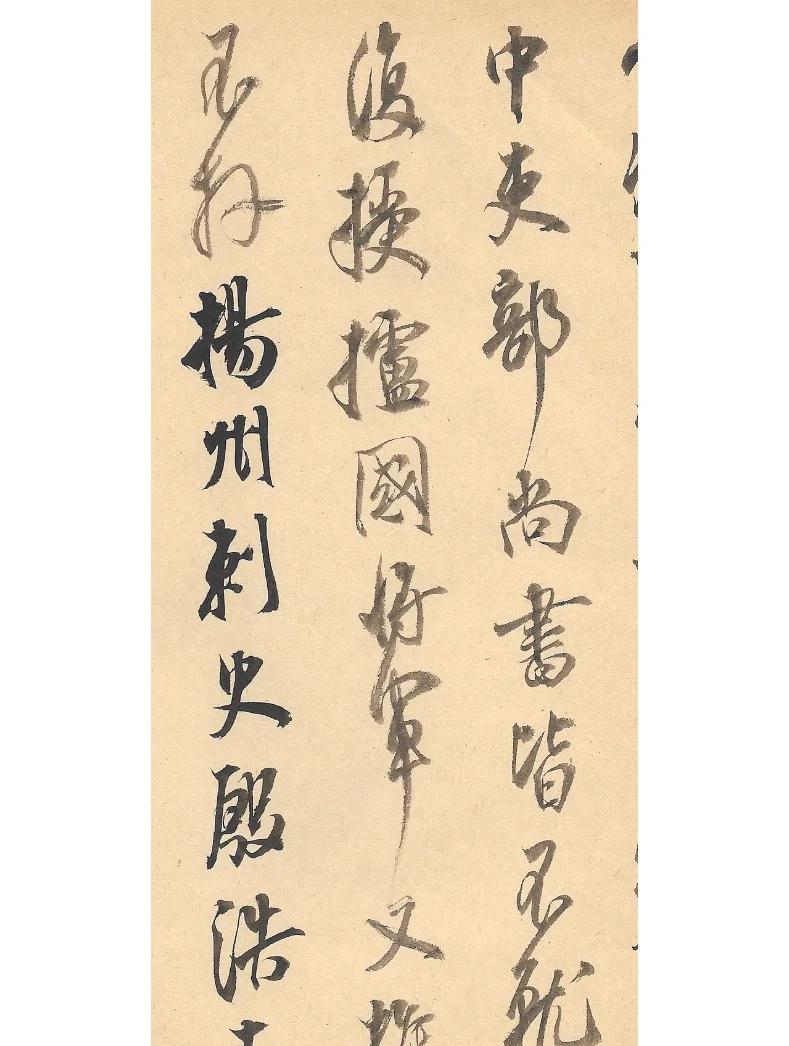 中吏部尚書皆不就
復授擅國將軍又推
不拜揚州刺史殷浩